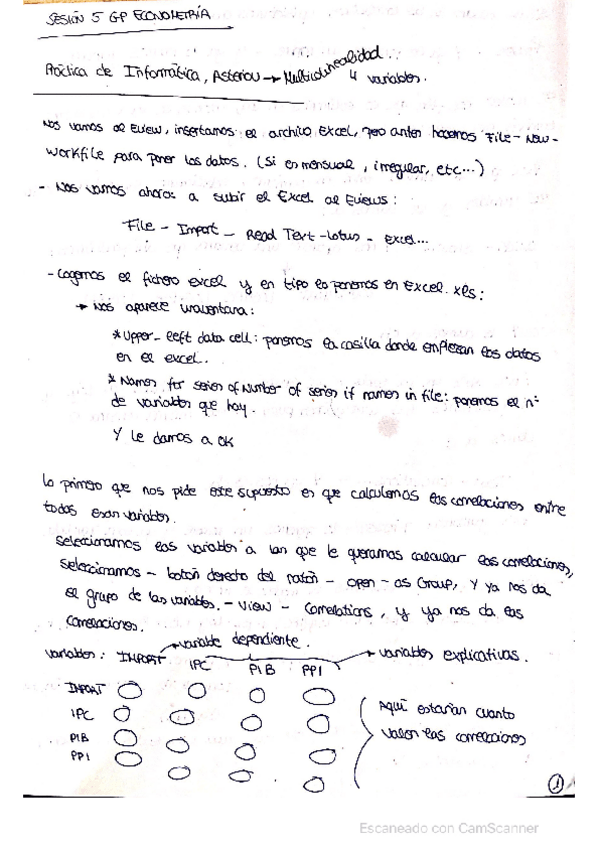 SESIÓN 5 GP ECONOMETRÍA
Práctica de Informática, Asteriou → Multicolinealidad.
4 variables.
Nos vamos al Eview, insertamos el archivo Excel, pero antes hacemos File - New -
Workfile para poner los datos. (Si es mensual, irregular, etc...)
- Nos vamos ahora a subir el Excel al Eviews:
File - Import - Read Text - Lotus - Excel...
- Cogemos el fichero excel y en tipo lo ponemos en Excel.xls:
→ Nos aparece una ventana:
* Upper-left data cell: ponemos la casilla donde empiezan los datos
en el excel.
* Names for series of Number of series if names in file: ponemos el nº
de variables que hay.
Y le damos a OK
Lo primero que nos pide este supuesto es que calculemos las correlaciones entre
todas esas variables.
Seleccionamos las variables a las que le queramos calcular las correlaciones,
seleccionamos - botón derecho del ratón - open - as Group, y ya nos da
el grupo de las variables. - View - Correlations, y ya nos da las
correlaciones.
→ variable dependiente.
Variables: IMPORT IPC PIB PPI → variables explicativas.
IMPORT
IPC
PIB
PPI
Aquí estarían cuanto
valen las correlaciones
1
Escaneado con CamScanner